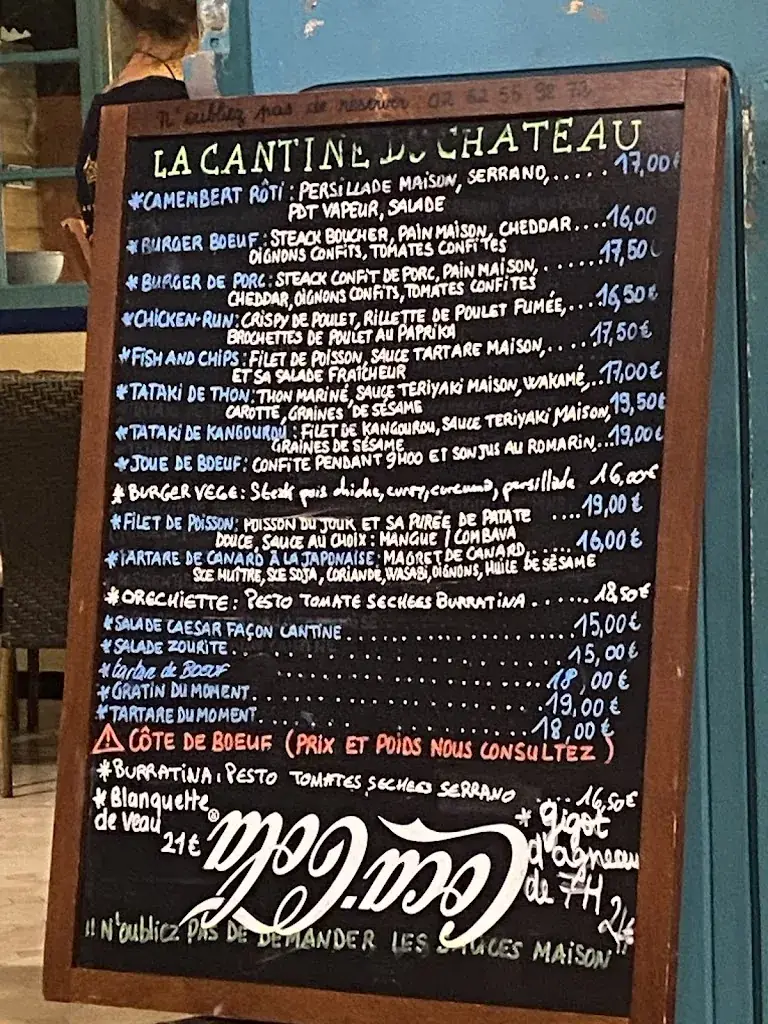 n'oubliez pas de réserver 02 62 55 92 73
LA CANTINE DU CHATEAU
*CAMEMBERT RÔTI : PERSILLADE MAISON, SERRANO,..... 17,00€
PDT VAPEUR, SALADE
*BURGER BOEUF : STEACK BOUCHER, PAIN MAISON, CHEDDAR....16,00
OIGNONS CONFITS, TOMATES CONFITES
*BURGER DE PORC : STEACK CONFIT DE PORC, PAIN MAISON, ......17,50€
CHEDDAR, OIGNONS CONFITS, TOMATES CONFITES
*CHICKEN-RUN : CRISPY DE POULET, RILLETTE DE POULET FUMÉE,...16,50€
BROCHETTES DE POULET AU PAPRIKA
*FISH AND CHIPS : FILET DE POISSON, SAUCE TARTARE MAISON,....17,50€
ET SA SALADE FRAICHEUR
*TATAKI DE THON : THON MARINÉ, SAUCE TERIYAKI MAISON, WAKAMÉ,..17,00€
CAROTTE, GRAINES DE SÉSAME
*TATAKI DE KANGOUROU : FILET DE KANGOUROU, SAUCE TERIYAKI MAISON, 19,50€
GRAINES DE SÉSAME
*JOUE DE BOEUF : CONFITE PENDANT 9H00 ET SON JUS AU ROMARIN...19,00€
*BURGER VEGE : Steak pois chiche, curry, curcuma, persillade 16,00€
*FILET DE POISSON : POISSON DU JOUR ET SA PURÉE DE PATATE ....19,00€
DOUCE, SAUCE AU CHOIX : MANGUE / COMBAVA
*TARTARE DE CANARD À LA JAPONAISE : MAGRET DE CANARD,......16,00€
SCE HUÎTRE, SCE SOJA, CORIANDE, WASABI, OIGNONS, HUILE DE SÉSAME
*ORECHIETTE : PESTO TOMATE SECHÉES BURRATINA......18,50€
*SALADE CAESAR FAÇON CANTINE..................15,00€
*SALADE ZOURITE..................15,00€
*tartare de BOEUF ..................18,00€
*GRATIN DU MOMENT..................19,00€
*TARTARE DU MOMENT..................18,00€
⚠ CÔTE DE BOEUF (PRIX ET POIDS NOUS CONSULTEZ)
*BURRATINA : PESTO TOMATES SECHEES SERRANO ....16,50€
*Blanquette
de veau
21€
*gigot
d'agneau
de 7H
21€
Coca-Cola®
!! N'oubliez PAS DE DEMANDER LES SAUCES MAISON !!